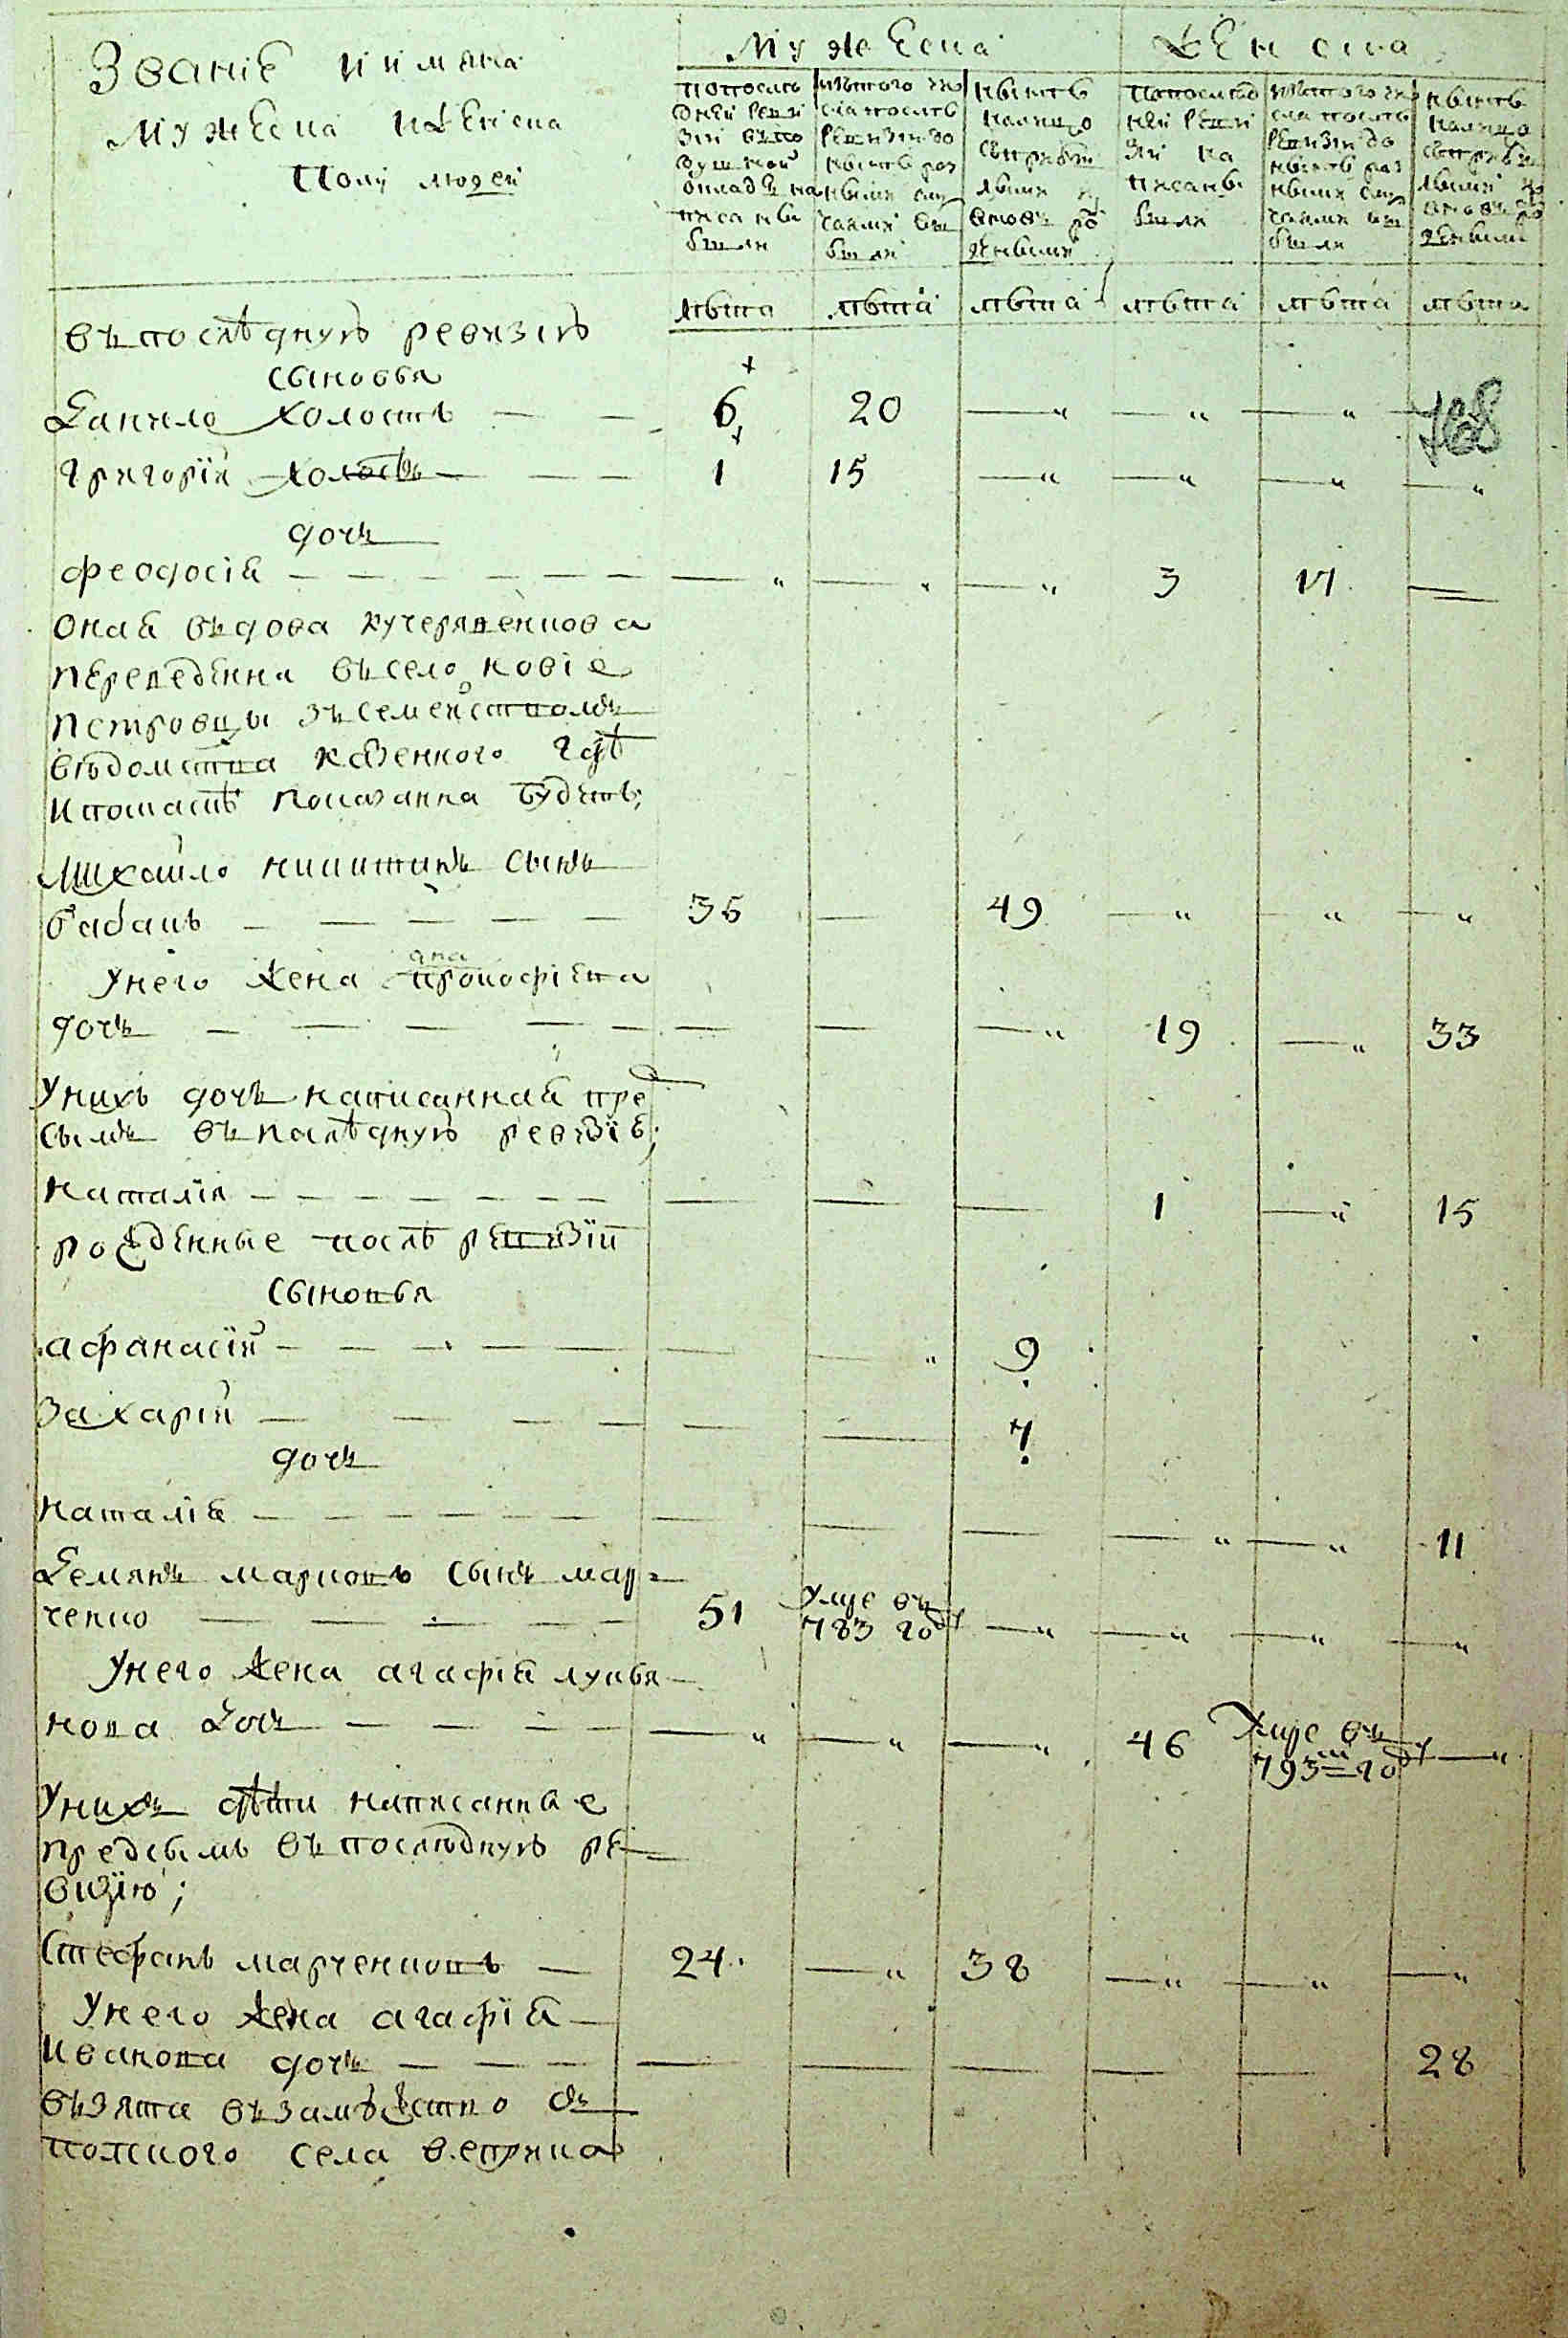 Званіе и имяна
мужеска и женска
полу людей
Мужеска
Женска
попослѣ
дней реви
зіи въпо
душной
окладъ на
писаны
были
изътого чи
сла послѣ
ревизіи до
нынѣ раз
ными слу
чаями вы
были
нынѣ
налицо
лѣта лѣта лѣта лѣта лѣта лѣта
попослѣд
ней реви
зіи на
писаны
были
изътого чи
сла послѣ
ревизіи до
нынѣ раз
ными слу
чаями вы
были
нынѣ
налицо
въ послѣдную ревизію
сыновья
Данило холостъ — — 6 20 —„ —„ —„
768
Григорій холостъ — — 1 15 —„ —„ —„ —„
дочь
феодосія — — — — — — — —„ —„ —„ 3 17 —
оная въдова кучерявенкова
переведенна въ село новіе
петровцы зъ семействомъ
вѣдомства казенного гдѣ
и показанна будетъ;
Михайло никитинъ сынъ
бабакъ — — — — — 35 — 49 —„ —„ —„
у него жена прокофіева
дочь — — — — — — — —„ 19 —„ 33
у нихъ дочь написанная пред
симъ въ послѣдную ревизіе;
наталія — — — — — — — — — — 1 —„ 15
рожденные послѣ ревизіи
сыновья
афанасій — — — — — — —„ 9
захарій — — — — — — 7
дочь
наталія — — — — — — — — — —„ —„ 11
Демянъ марковъ сынъ мар-
ченко — — — — 51 умре въ 783 год —„ —„ —„ —„
у него жена агафія лукья-
нова дочь — — — — —„ —„ —„ 46 умре въ 793 год —„
у нихъ дѣти написанные
предсымъ въ послѣдную ре-
визію;
Стефанъ марченковъ — 24 —„ 38 —„ —„ —„
у него жена агафія
иванова дочь — — — — — — — — 28
взята въ замѣжство съ
польского села веприка